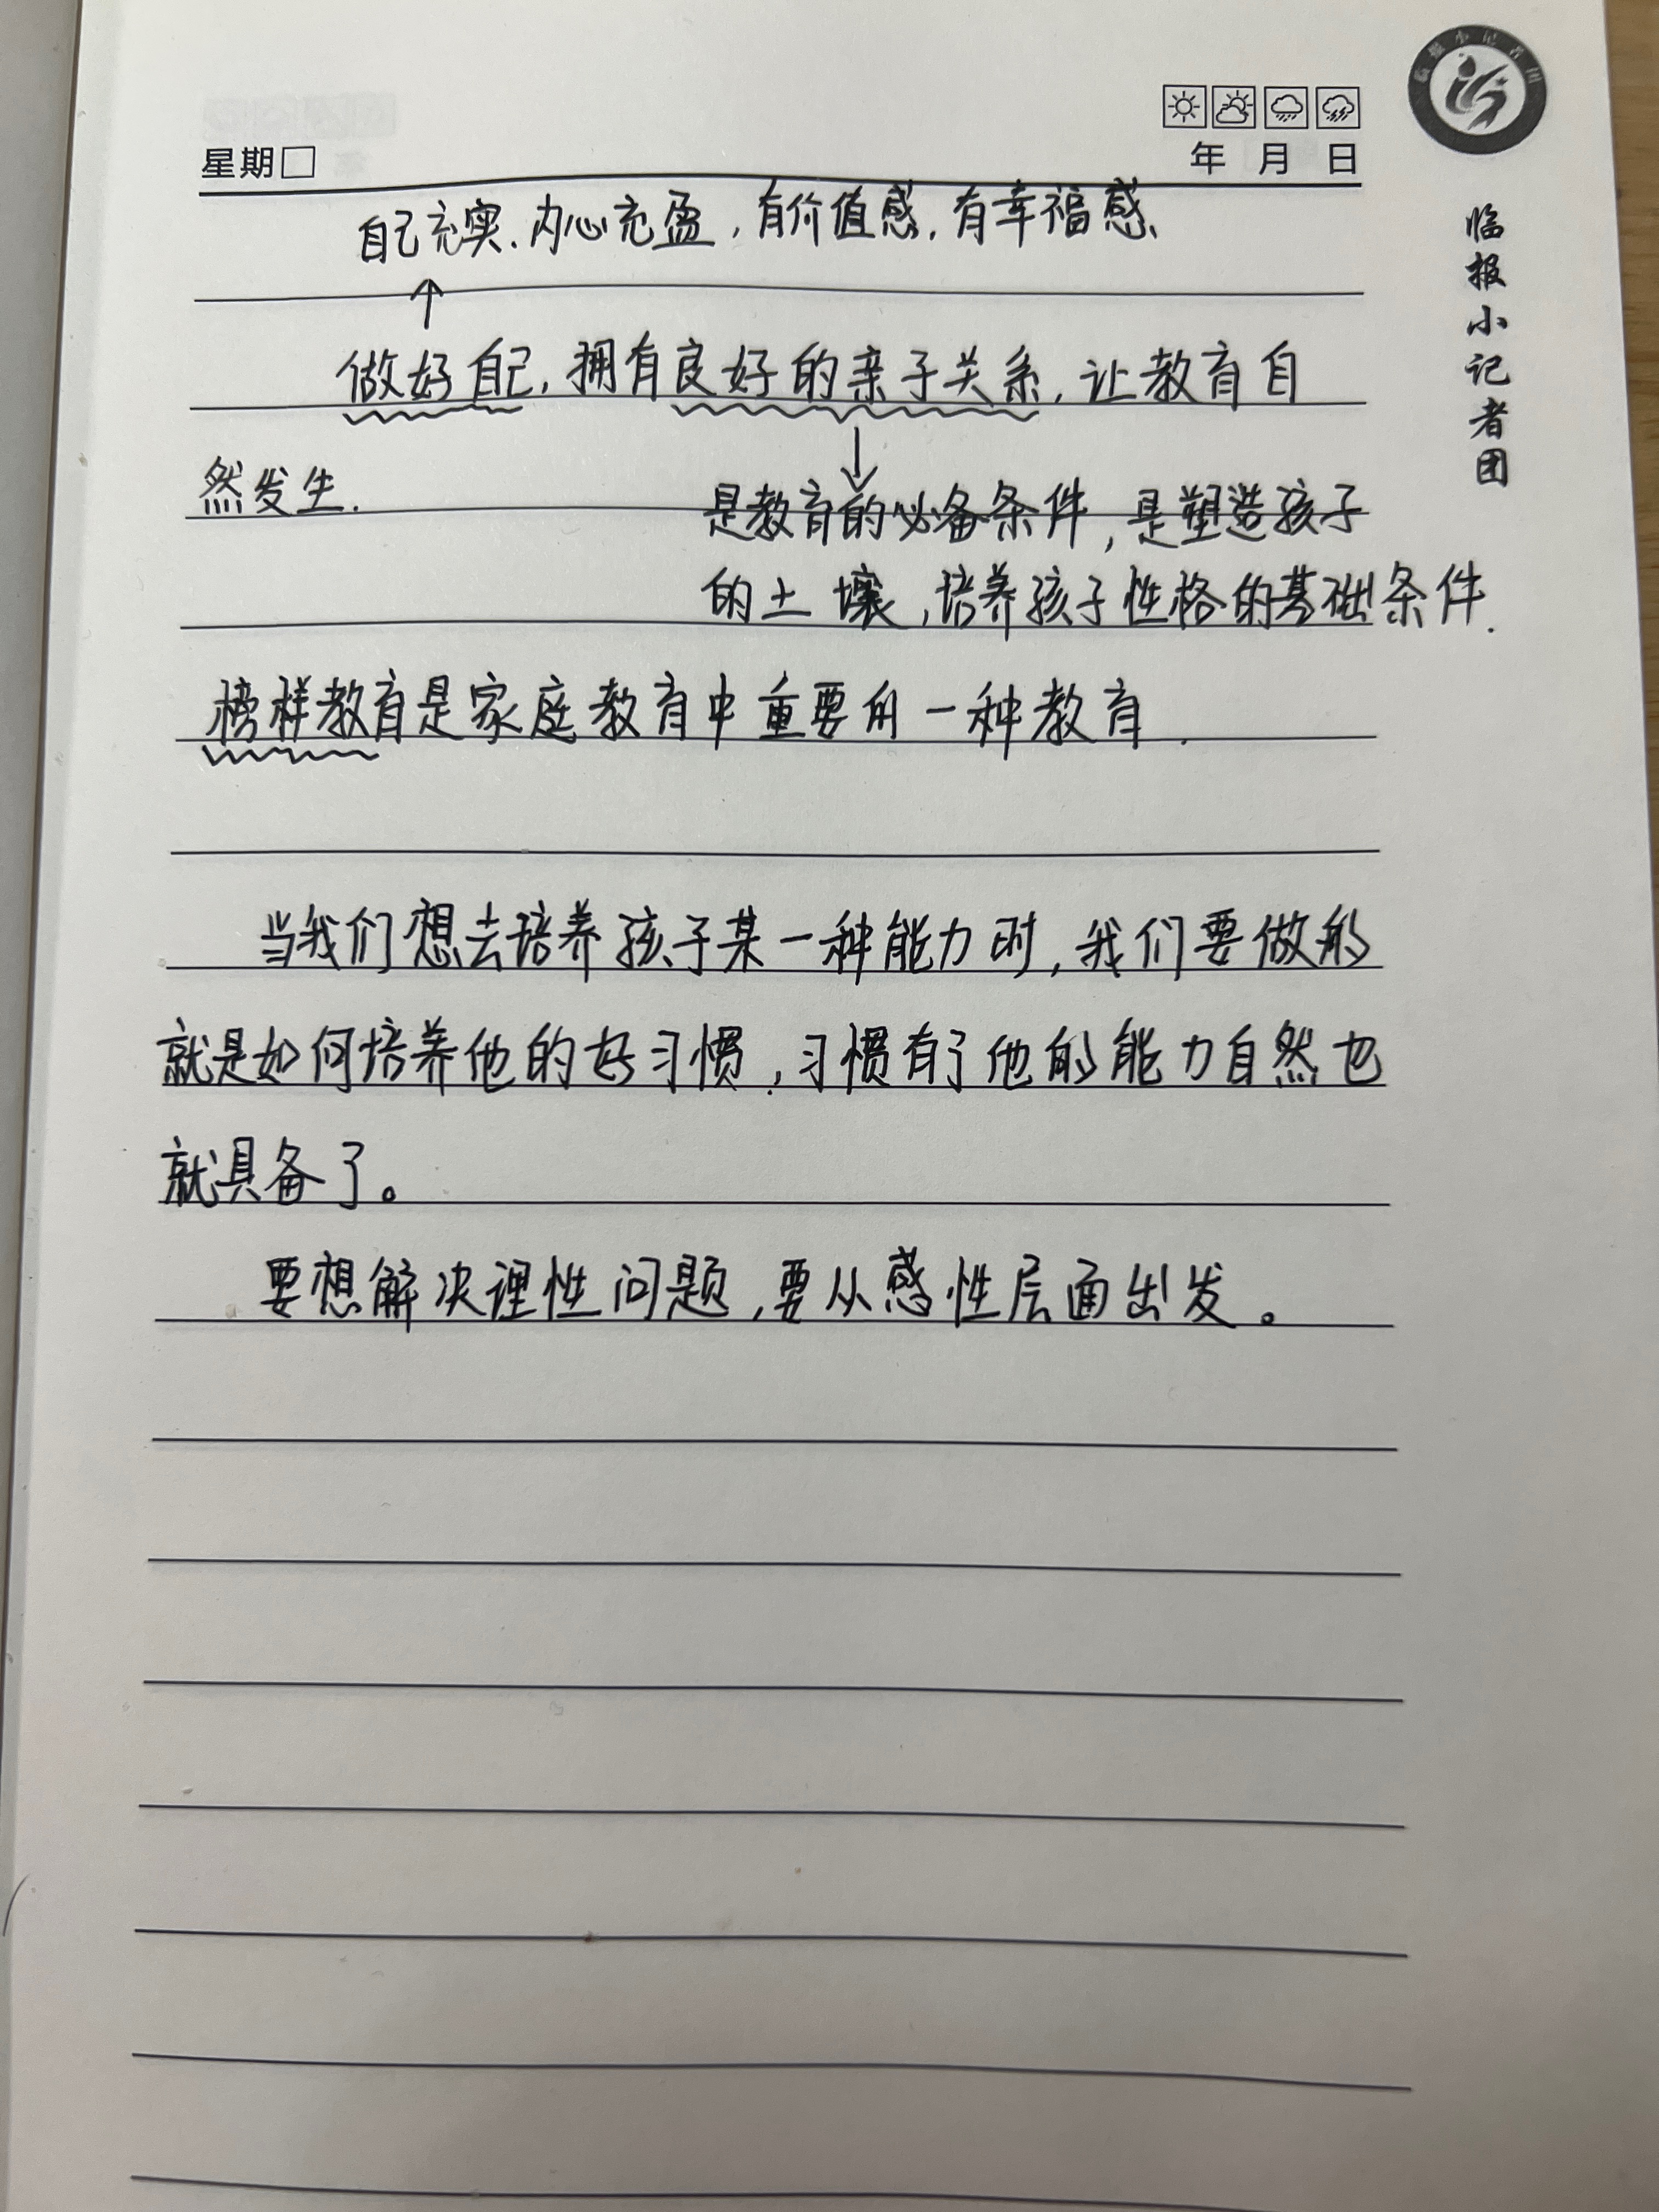 临报小记者团
星期
年 月 日
临报小记者团
自己充实、内心充盈，有价值感，有幸福感、
↑
做好自己，拥有良好的亲子关系，让教育自
↓
然发生.
是教育的必备条件，是塑造孩子
的土壤，培养孩子性格的基础条件.
榜样教育是家庭教育中重要的一种教育.
当我们想去培养孩子某一种能力时，我们要做的
就是如何培养他的好习惯，习惯有了他的能力自然也
就具备了。
要想解决理性问题，要从感性层面出发。